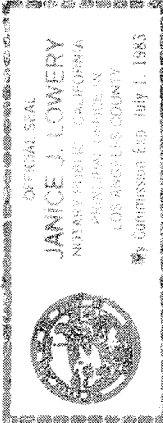 OFFICIAL SEAL
JANICE J. LOWERY
NOTARY PUBLIC CALIFORNIA
PRINCIPAL OFFICE IN
LOS ANGELES COUNTY
My Commission Exp. July 1, 1983